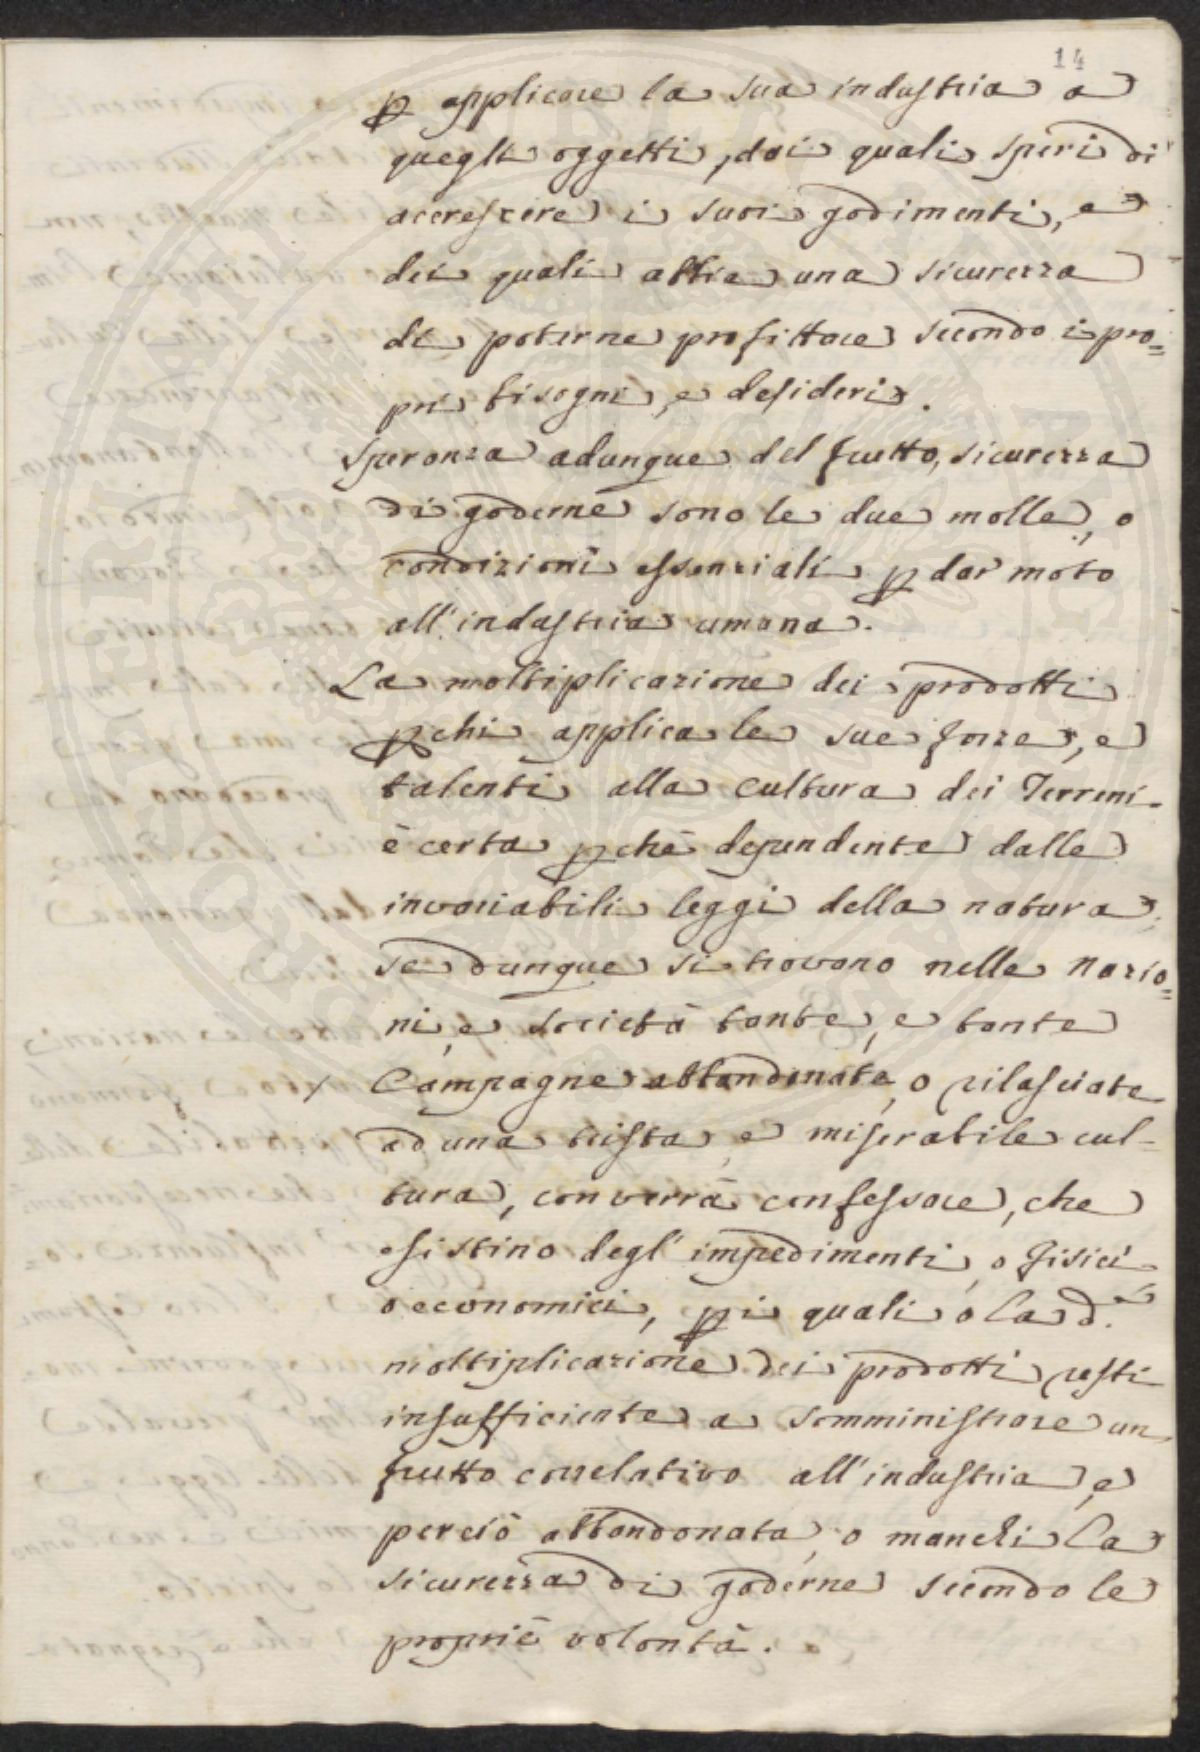 14
p applicare la sua industria a
quegli oggetti, dai quali speri di
accrescere i suoi godimenti, e
dei quali abbia una sicurezza
di poterne profittare secondo i pro=
pri bisogni, e desideri.
Speranza adunque del frutto, sicurezza
di goderne sono le due molle, o
condizioni essenziali p dar moto
all'industria umana.
La moltiplicazione dei prodotti
p chi applica le sue forze, e
talenti alla cultura dei Terreni
è certa pchè dependente dalle
invariabili leggi della natura,
se dunque si trovano nelle nazio=
ni, e società tante, e tante
Campagne abbandonate, o rilasciate
ad una trista, e miserabile cul-
tura, converrà confessare, che
esistino degl'impedimenti, o fisici,
o economici, p i quali o la d.
moltiplicazione dei prodotti resti
insufficiente a somministrare un
frutto correlativo all'industria, e
perciò abbandonata, o manchi la
sicurezza di goderne secondo le
proprie volontà.
PROSPERITATI PUBLICAE AUGENDAE